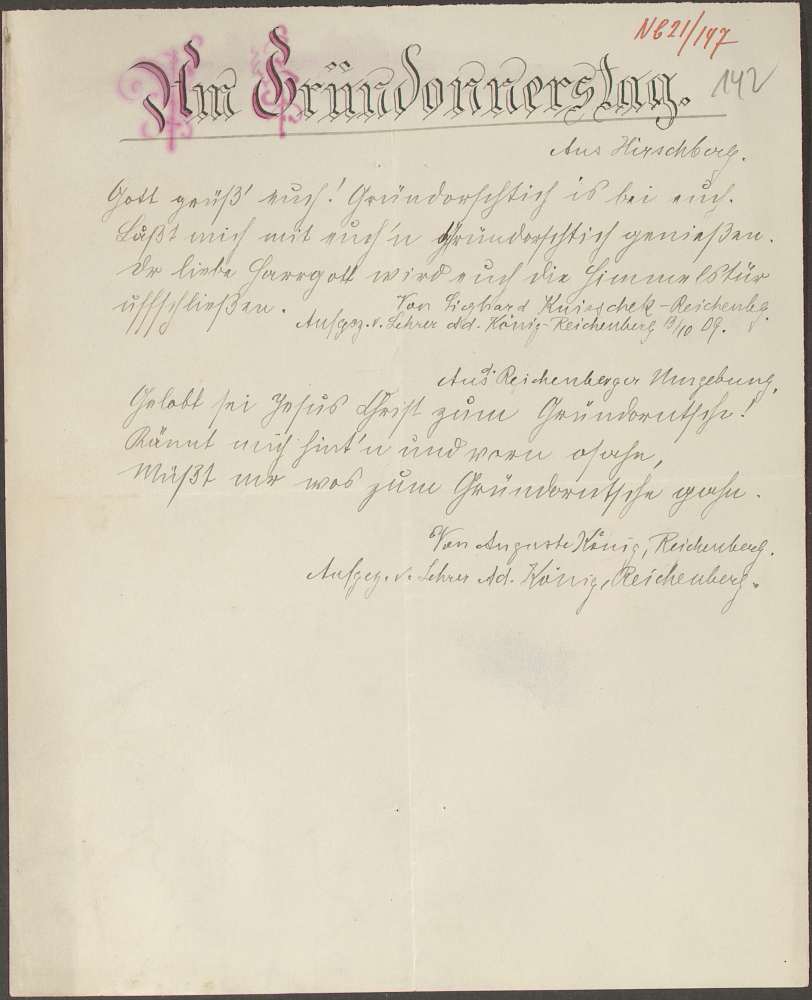 NB 21/147
Am Gründonnerstag.
142
Aus Hirschberg.
Gott grüß' euch! Gründorschtich is bei euch.
Laßt mich mit euch'n Gründorschtich genießen.
Dr liebe Harrgott wird euch die Himmelstür
uffschließen.
Von Sighard Knieschek-Reichenbg.
Aufgez. v. Lehrer Ad. König-Reichenberg /10 09.
Aus d. Reichenberger Umgebung.
Gelobt sei Jesus Christ zum Gründorntsche!
Kännt mich hint'n und vorn osahn,
Müßt mr wos zum Gründorntsche gahn.
Von Auguste König, Reichenberg.
Aufgez. v. Lehrer Ad. König, Reichenberg.